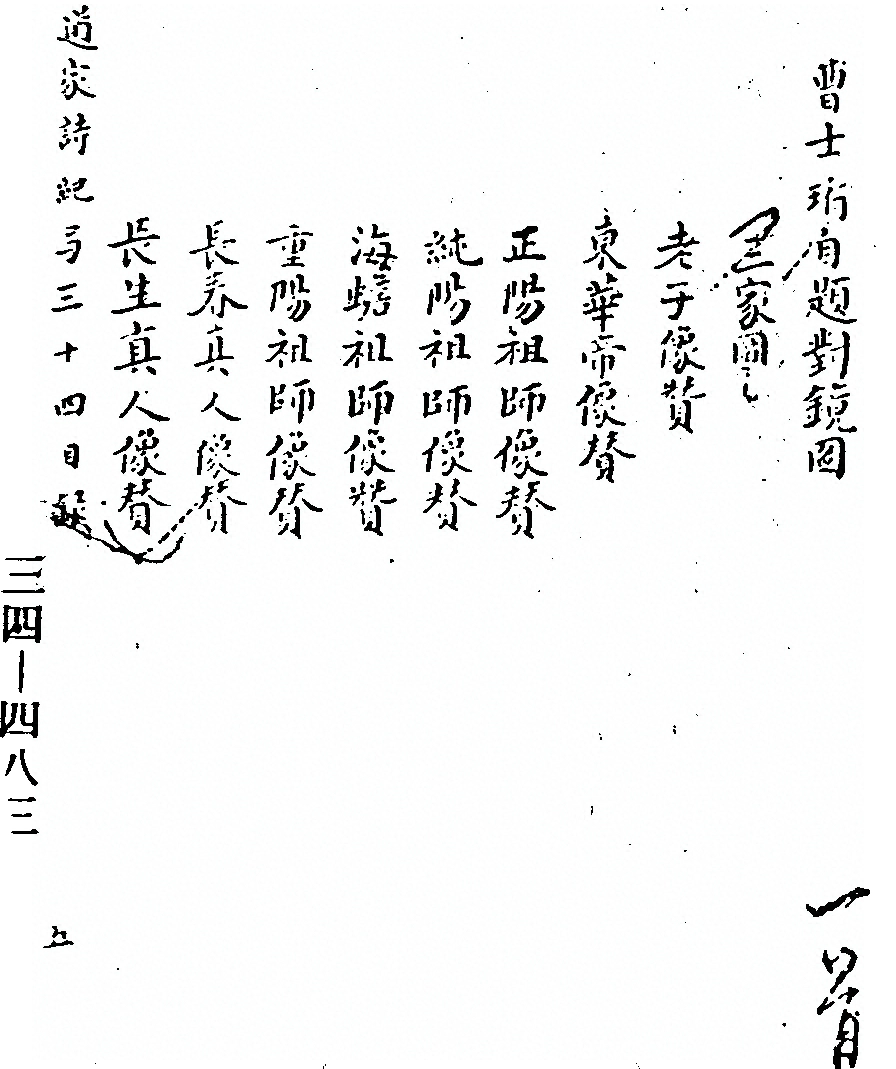 曹士珩自題對鏡図
三家圖
老子像贊
東華帝像贊
正陽祖師像贊
純陽祖師像贊
海蟾祖師像贊
重陽祖師像贊
長春真人像贊
長生真人像贊
道家詩紀 三十四目録
五
三四—四八三